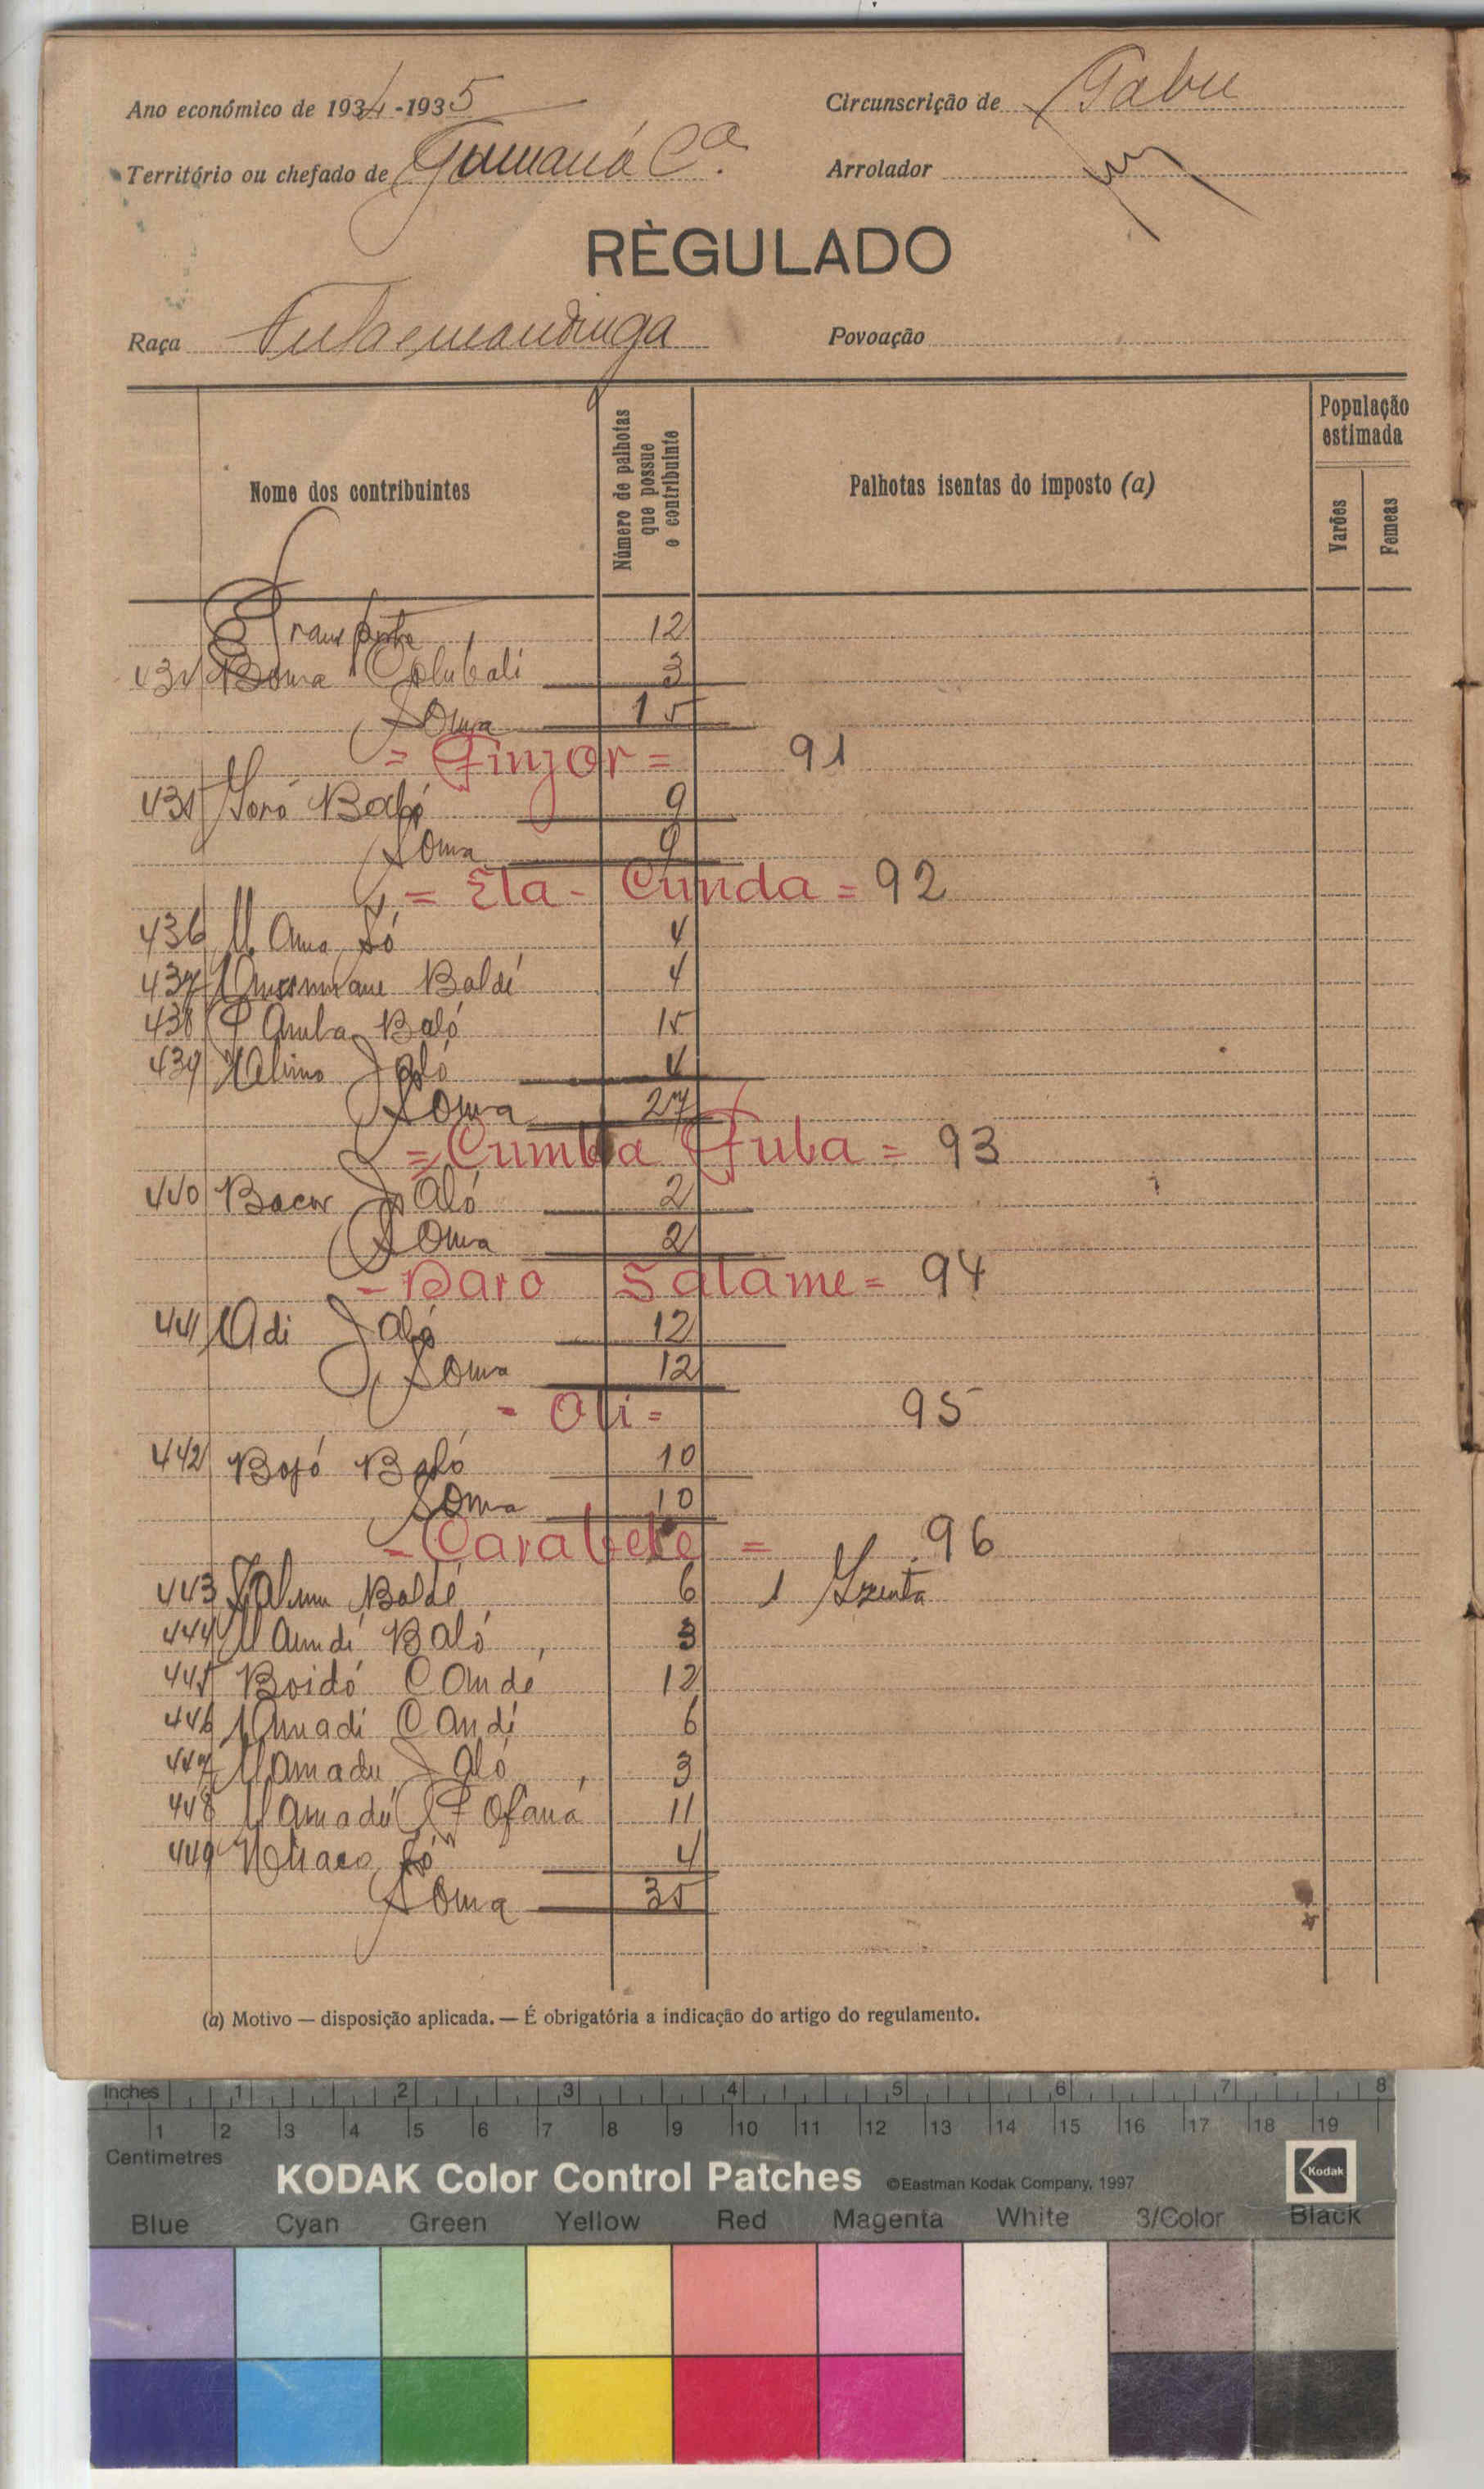 Ano económico de 1934-1935
Circunscrição de Gabu
Território ou chefado de Gumaná Cª.
Arrolador
RÈGULADO
Raça Fula e mandinga
Povoação
Nome dos contribuintes
Número de palhotas que possue o contribuinte
Palhotas isentas do imposto (a)
População estimada
Varões
Femeas
Transporte 12
Colubali 3
Soma 15
= Finjor = 91
Baló 9
Soma 9
= Eta - Cunda = 92
436 Só 4
437 Baldé 4
438 Baló 15
439 Jaló 4
Soma 27
= Cumba Fula = 93
440 Jaló 2
Soma 2
- Baro Salame = 94
441 Adi Jaló 12
Soma 12
- Oli = 95
442 Bojó Baló 10
Soma 10
- Carabeke = 96
443 Baldé 6 1 Izenta
444 Baló 3
445 Boidó Candé 12
446 Amadi Candé 6
447 Mamadu Jaló 3
448 Mamadú Fofaná 11
449 Só 4
Soma 35
(a) Motivo — disposição aplicada. — É obrigatória a indicação do artigo do regulamento.
Inches 1 2 3 4 5 6 7 8
1 2 3 4 5 6 7 8 9 10 11 12 13 14 15 16 17 18 19
Centimetres
KODAK Color Control Patches ©Eastman Kodak Company, 1997 Kodak
Blue Cyan Green Yellow Red Magenta White 3/Color Black